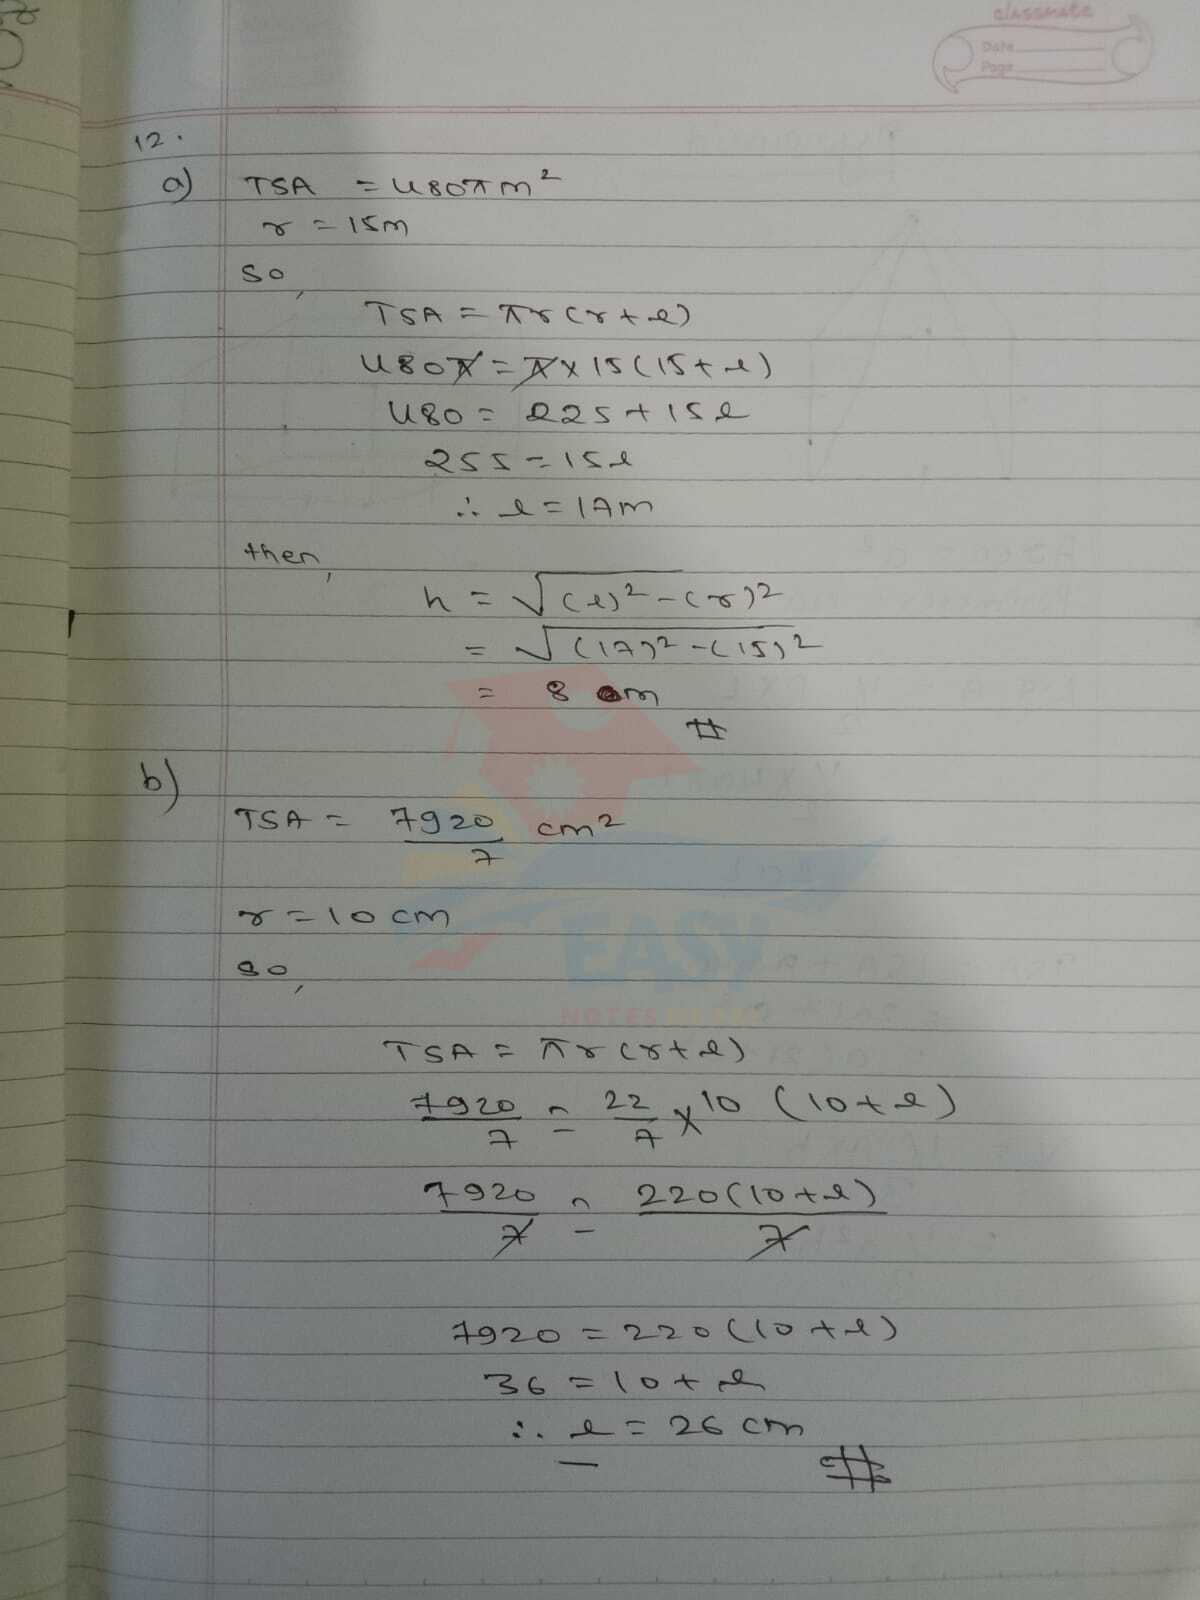 classmate
Date
Page
12.
a) TSA = 480πm²
r = 15m
so,
TSA = πr(r+l)
480π = π×15(15+l)
480 = 225+15l
255 = 15l
∴ l = 17m
then,
h = √(l)²-(r)²
= √(17)²-(15)²
= 8 m
#
b)
TSA = 7920/7 cm²
r = 10 cm
so,
EASY
NOTES
TSA = πr(r+l)
7920/7 = 22/7 × 10 (10+l)
7920/7 = 220(10+l)/7
7920 = 220(10+l)
36 = 10+l
∴ l = 26 cm
#